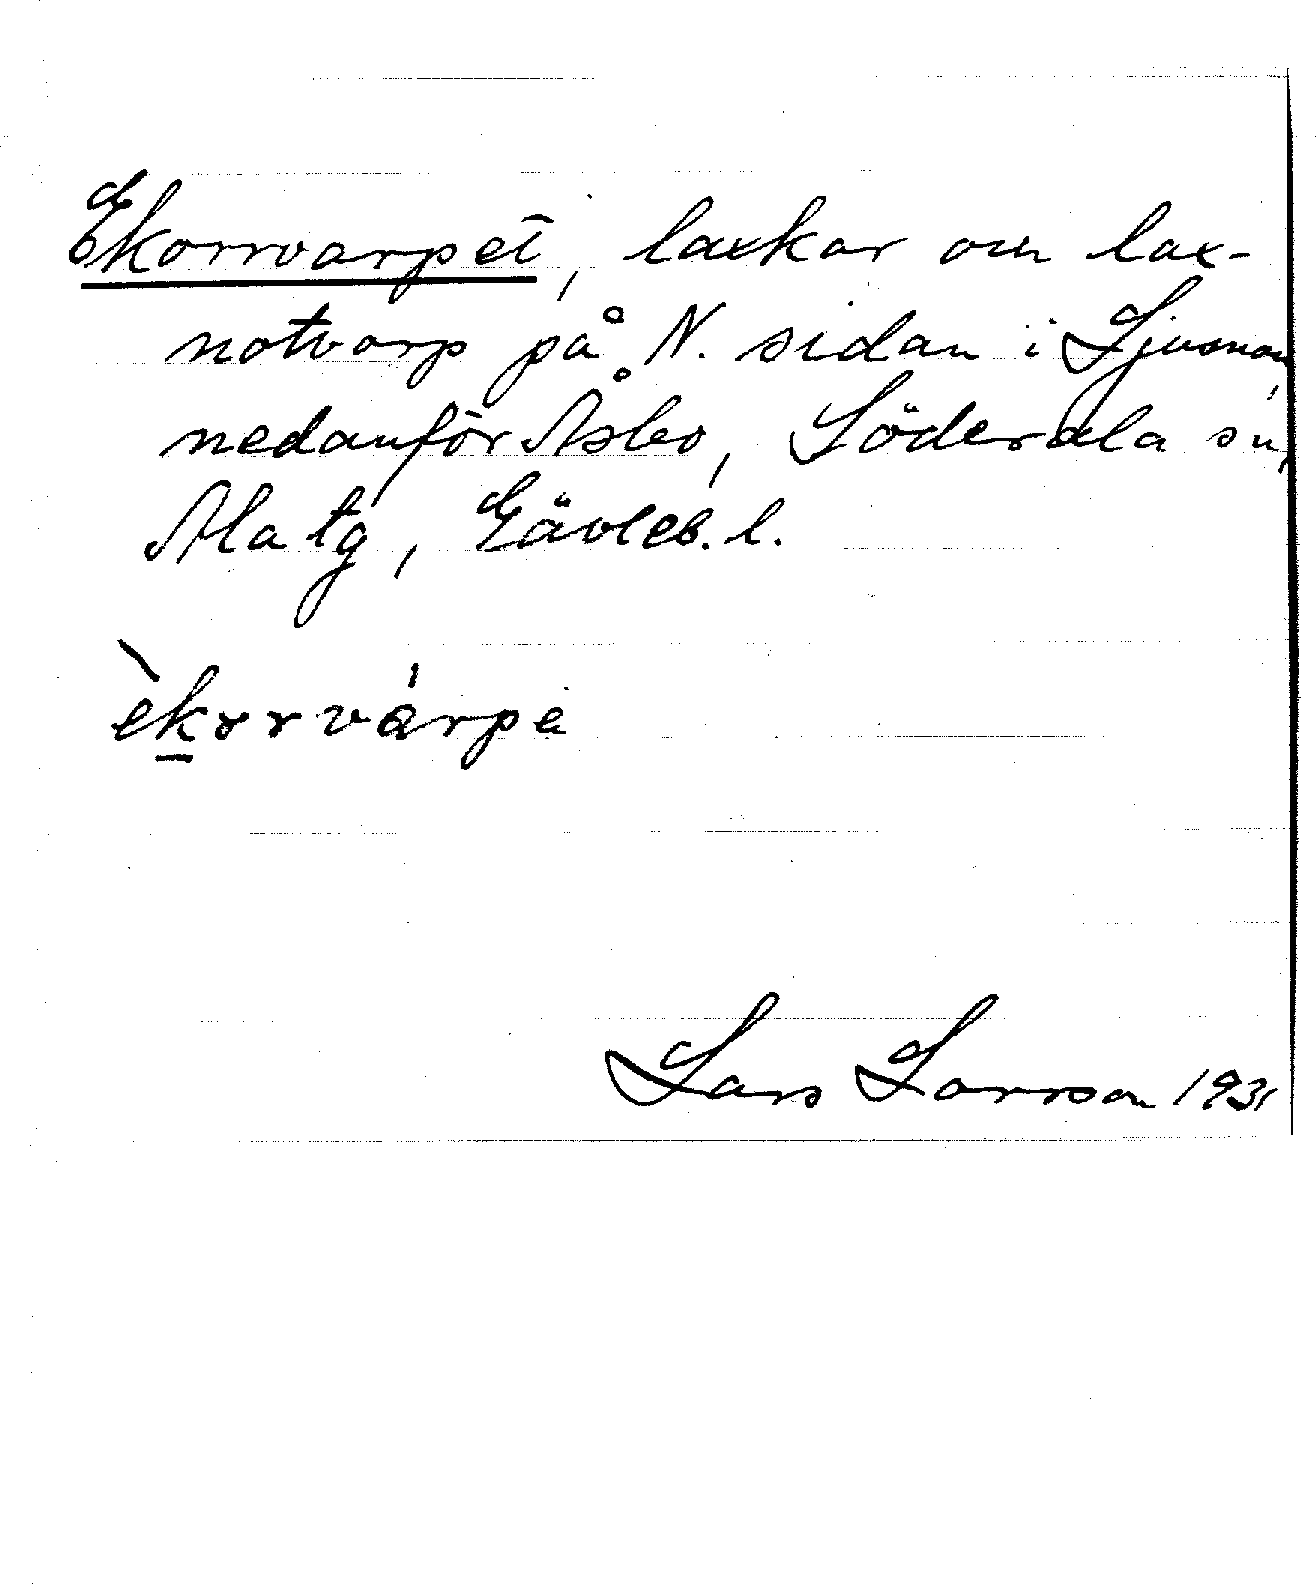 Ekorrvarpet, laxkar och lax-
notvarp på N. sidan i Ljusnan
nedanför Åsbo, Söderala sn,
Ala tg, Gävleb. l.
èkorrvárpe
Lars Larsson 1931